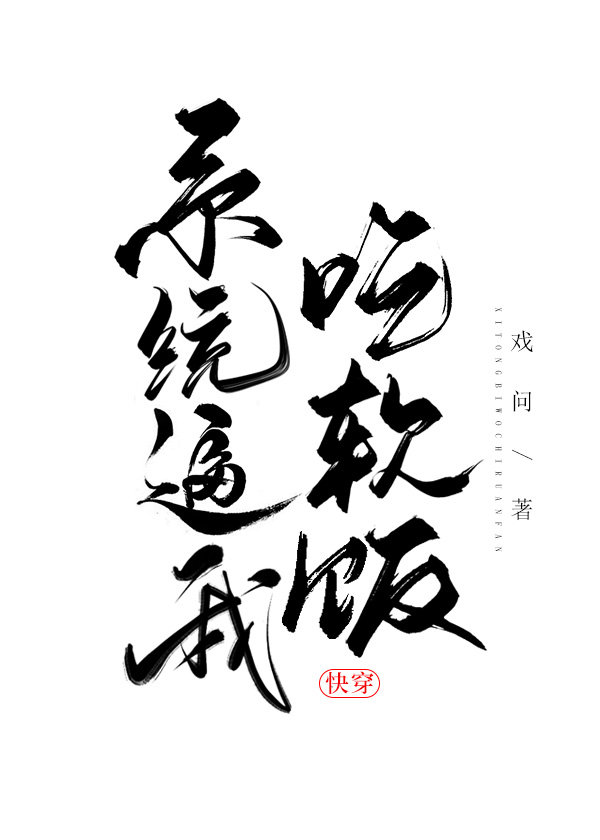 系统逼我
吃软饭
快穿
戏问/著
XITONGBIWOCHIRUANFAN